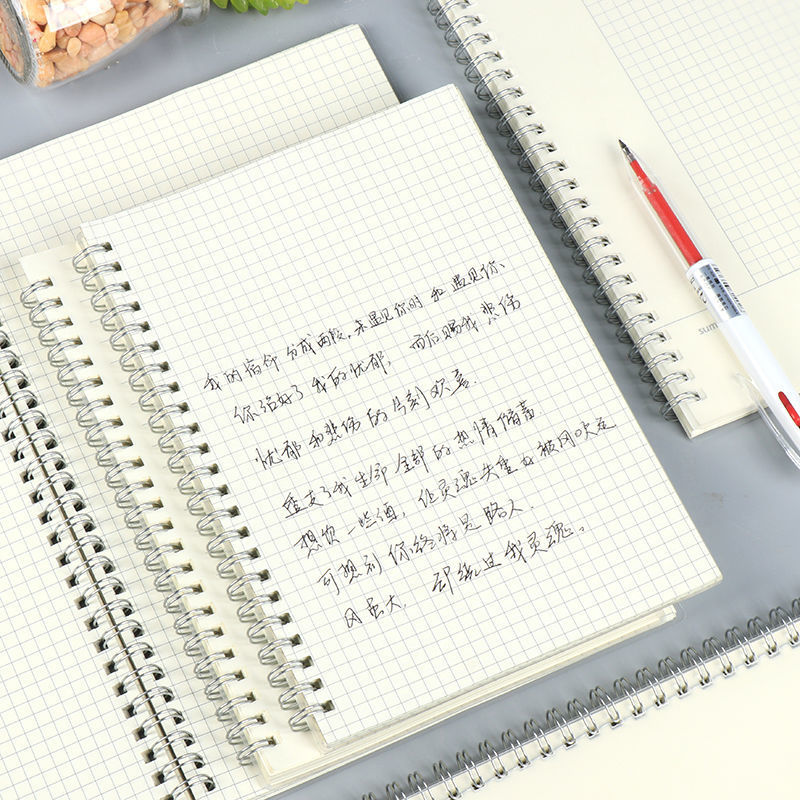 我的宿命分成两段,未遇见你时和遇见你、
你治好了我的忧郁,而后赐我悲伤
忧郁和悲伤的今刻欢喜.
透支了我生命全部的热情储蓄
想饮一些酒,让灵魂失重好被风吹走
可想到你终将是路人.
风虽大,却绕过我灵魂。
sum